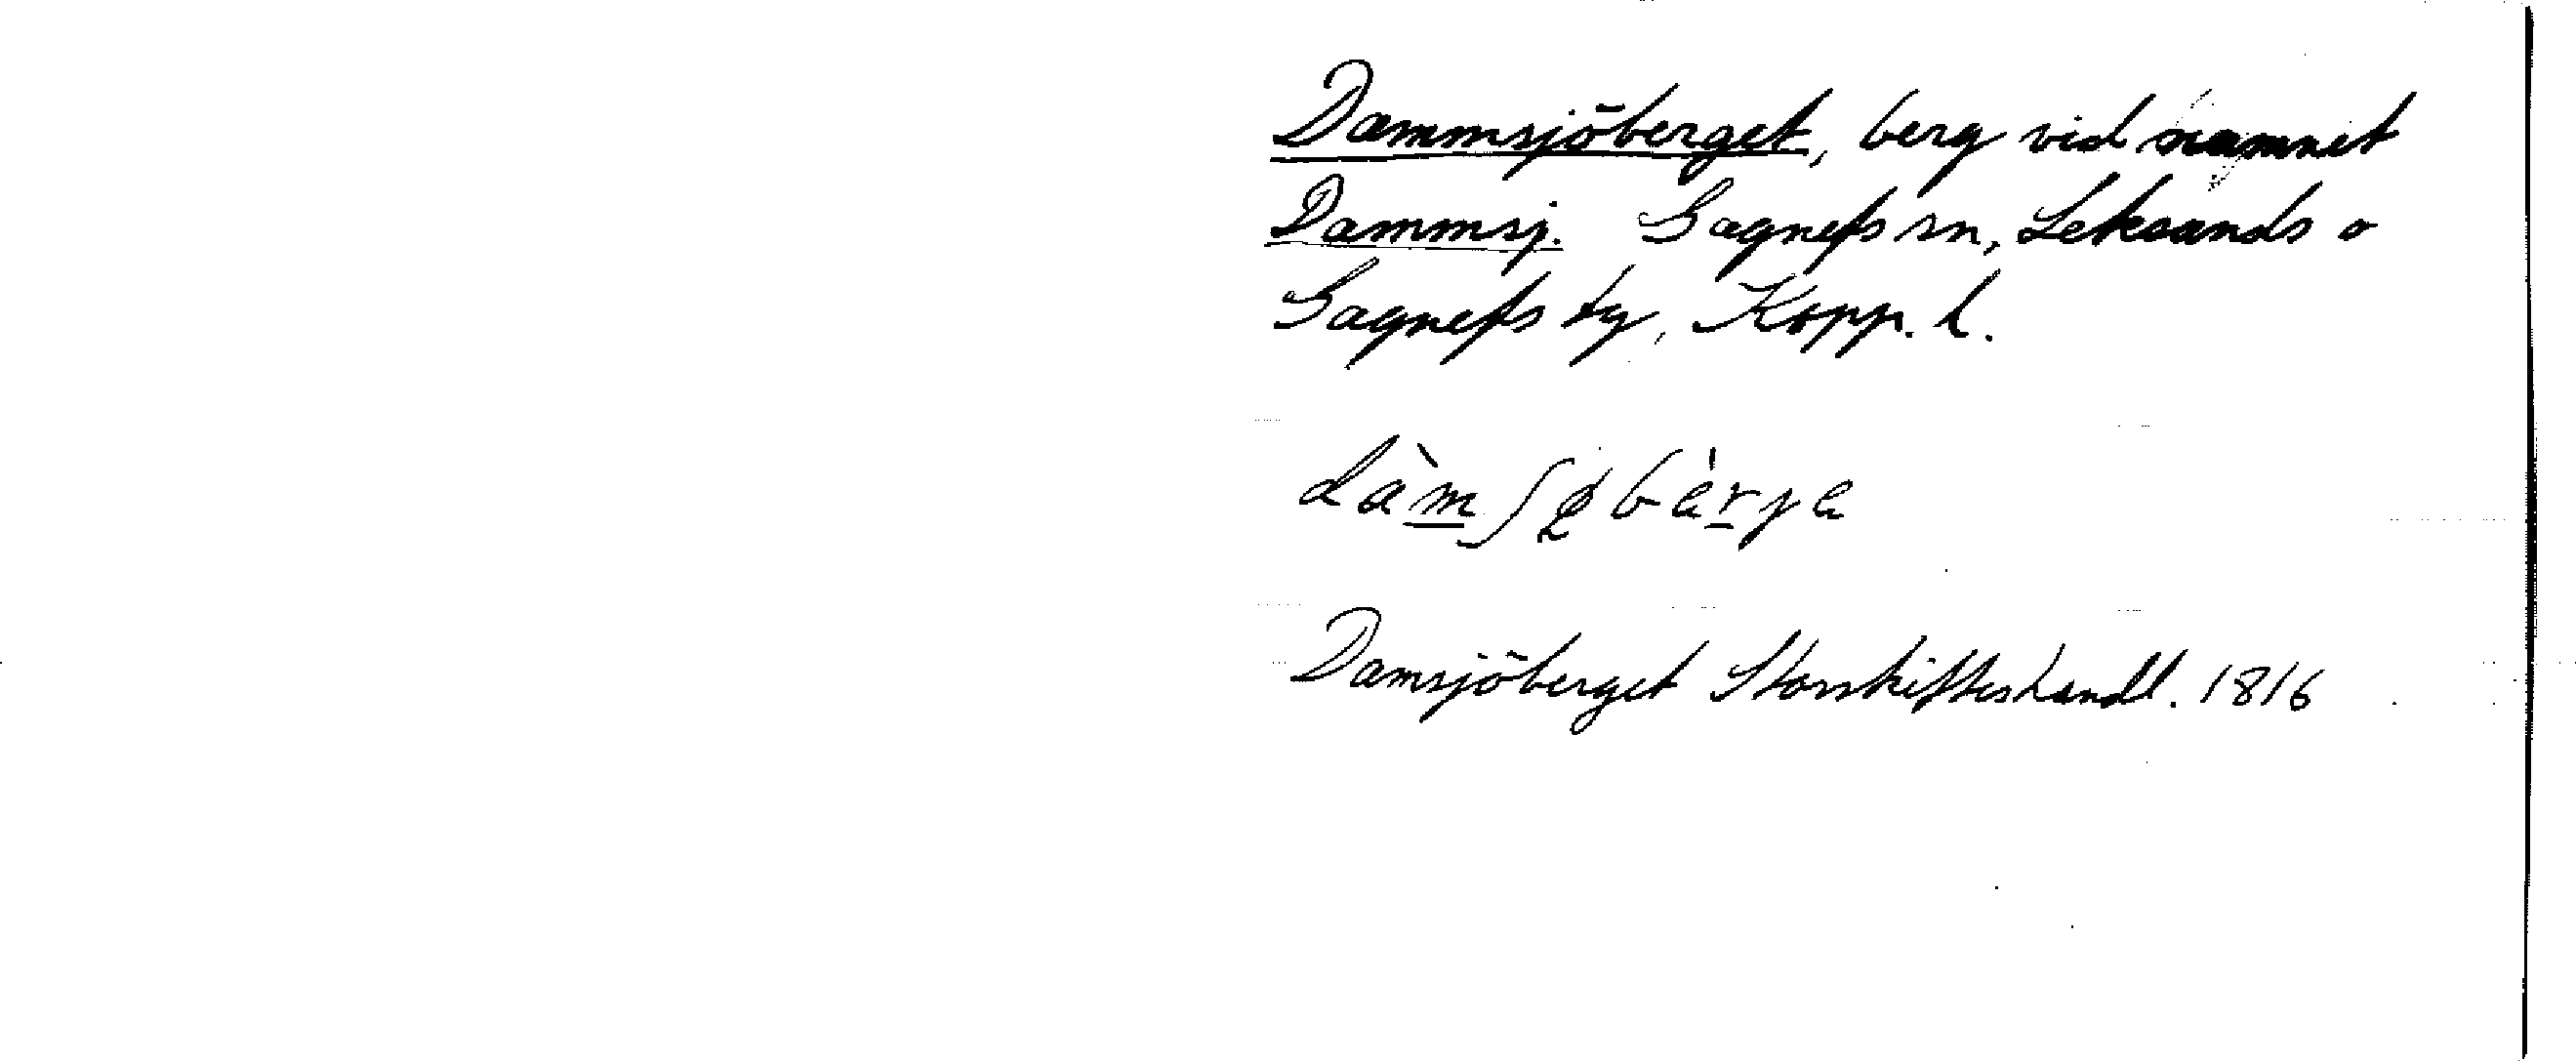 Dammsjöberget, berg vid namnet
Dammsj. Gagnefs sn, Leksands o
Gagnefs tg, Kopp. l.
Damsjöberget Storskifteshandl. 1816